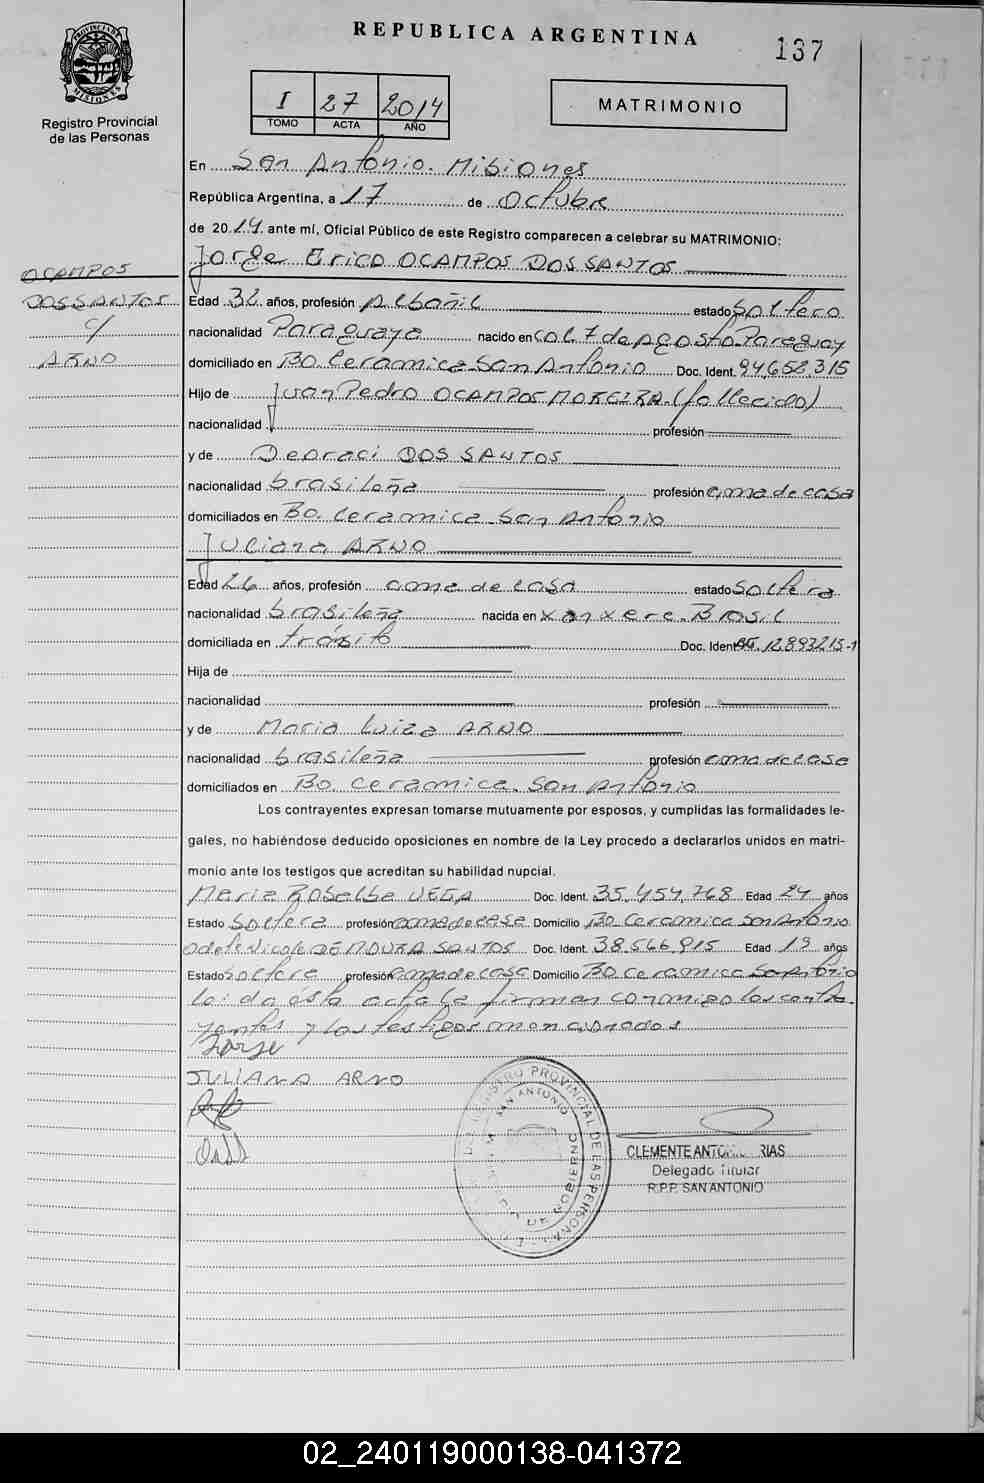 REPUBLICA ARGENTINA
137
PROVINCIA DE MISIONES
Registro Provincial
de las Personas
I 27 2014
TOMO ACTA AÑO
MATRIMONIO
En San Antonio. Misiones
República Argentina, a 17 de Octubre
de 2014 ante mí, Oficial Público de este Registro comparecen a celebrar su MATRIMONIO:
Jorge Erico OCAMPOS DOS SANTOS
OCAMPOS
DOS SANTOS
c/
ARNO
Edad 32 años, profesión Albañil estado Soltero
nacionalidad Paraguaya nacido en Col. 7 de Agosto-Paraguay
domiciliado en Bo. Ceramica San Antonio Doc. Ident. 94.658.315
Hijo de Juan Pedro OCAMPOS MOREIRA. (fallecido)
nacionalidad profesión
y de Deoraci DOS SANTOS
nacionalidad brasileña profesión ama de casa
domiciliados en Bo. Ceramica San Antonio
Juliana ARNO
Edad 26 años, profesión ama de casa estado Soltera
nacionalidad brasileña nacida en Xanxere. Brasil
domiciliada en tránsito Doc. Ident. 12.893215-1
Hija de
nacionalidad profesión
y de Maria Luiza ARNO
nacionalidad brasileña profesión ama de casa
domiciliados en Bo. Ceramica. San Antonio
Los contrayentes expresan tomarse mutuamente por esposos, y cumplidas las formalidades le-
gales, no habiéndose deducido oposiciones en nombre de la Ley procedo a declararlos unidos en matri-
monio ante los testigos que acreditan su habilidad nupcial.
Maria Rosalba VEGA Doc. Ident. 35.454.768 Edad 24 años
Estado Soltera profesión ama de casa Domicilio Bo Ceramica San Antonio
Odete Nicole DE MOURA SANTOS Doc. Ident. 38.566.915 Edad 19 años
Estado Soltera profesión ama de casa Domicilio Bo Ceramica San Antonio
leida ésta acta la firman conmigo los contra-
yentes y los testigos mencionados
Jorge
JULIANA ARNO
REGISTRO PROVINCIAL DE LAS PERSONAS
SAN ANTONIO
CLEMENTE ANTONIO RIAS
Delegado Titular
R.P.P. SAN ANTONIO
02_240119000138-041372